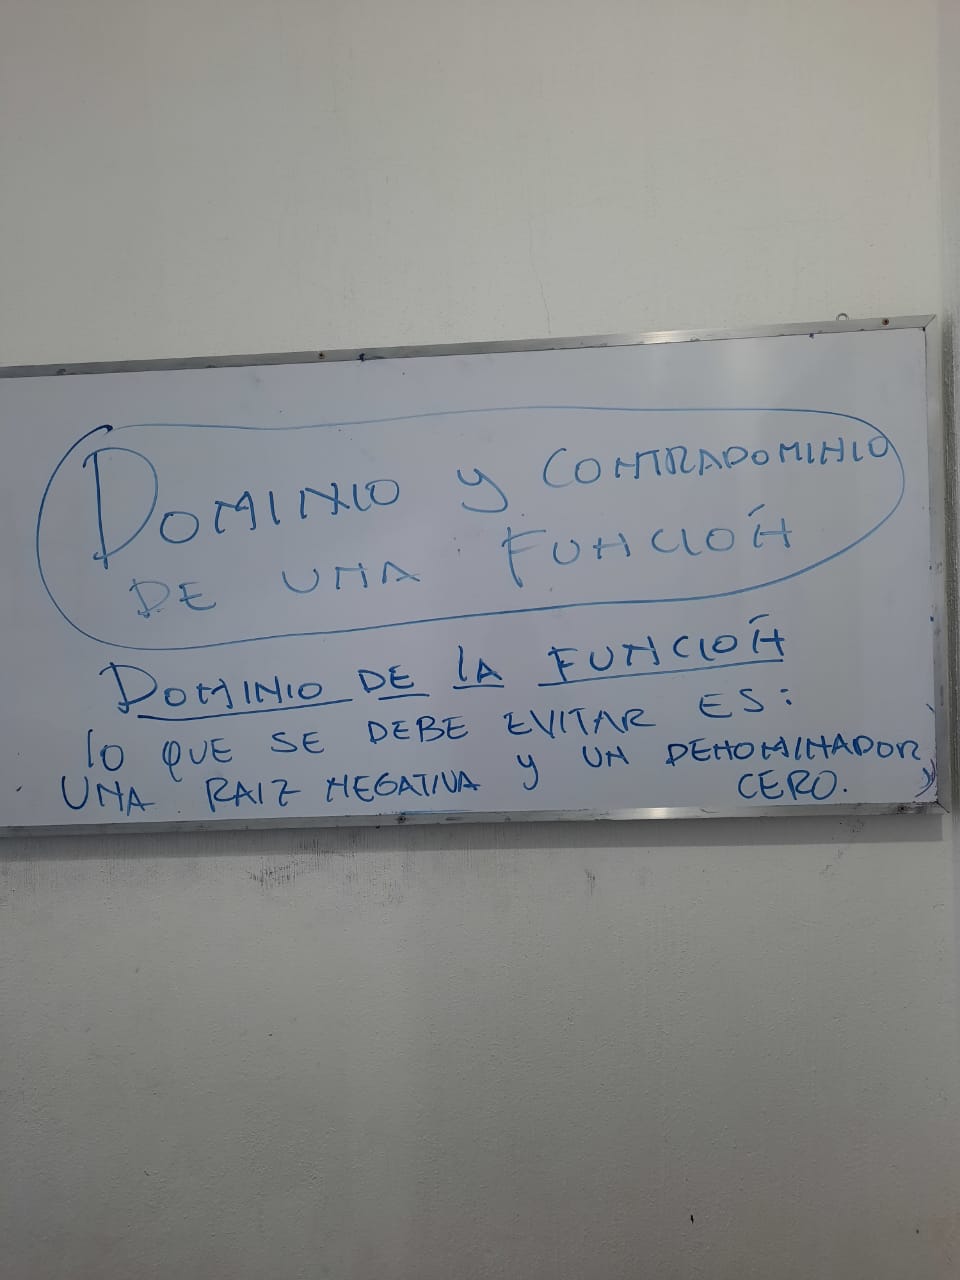 DOMINIO y CONTRADOMINIO
DE UNA FUNCIÓN
DOMINIO DE LA FUNCIÓN
lO QUE SE DEBE EVITAR ES:
UNA RAIZ NEGATIVA y UN DENOMINADOR
CERO.